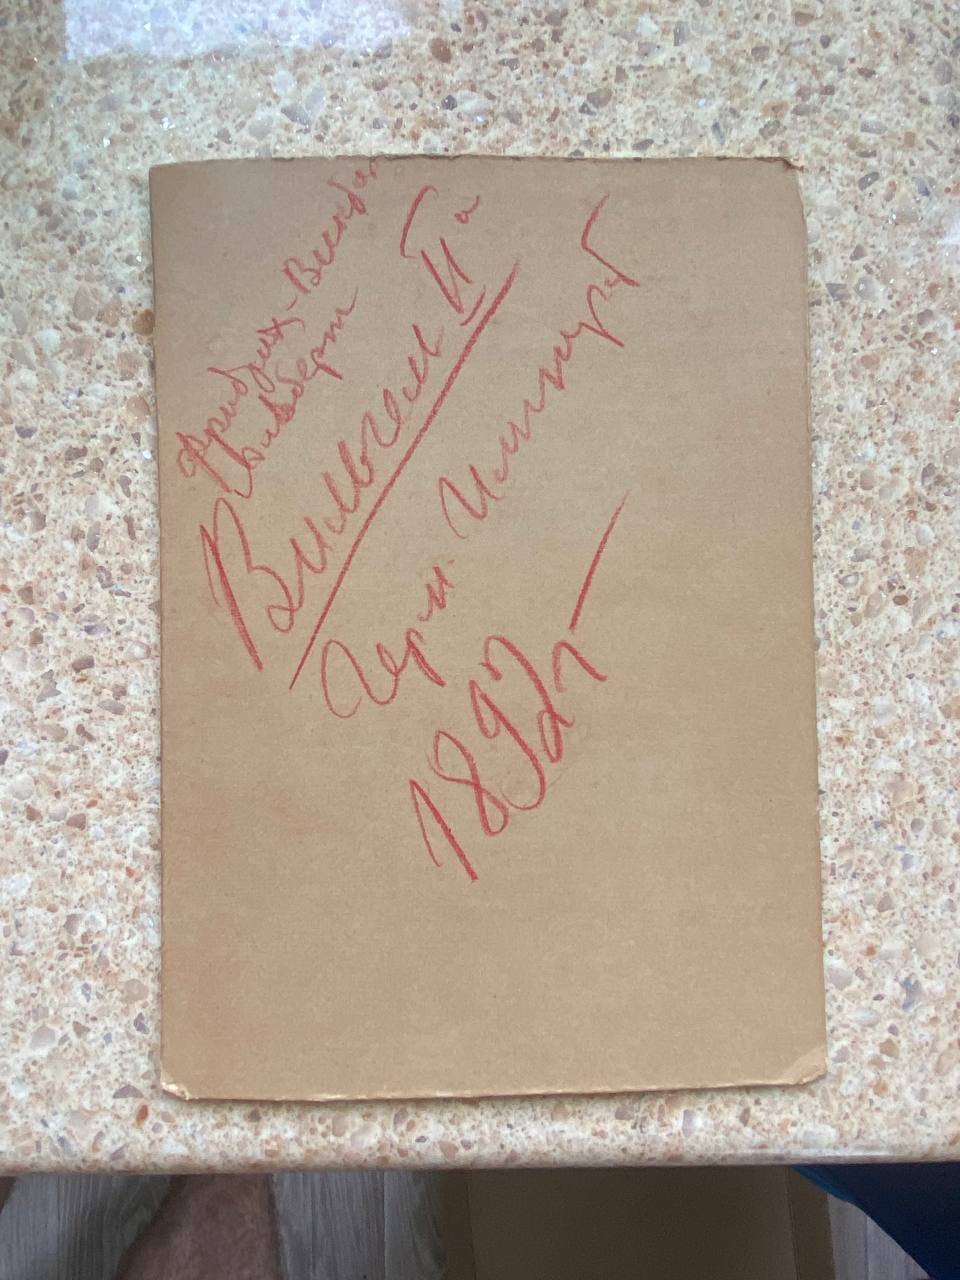 Фридрих-Виктор
Альберт
Вильгельм IIй
Герм. Император
1892г